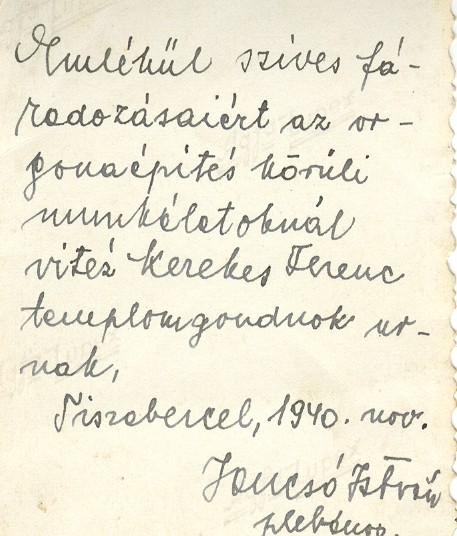 Emlékül szives fá-
radozásaiért az or-
gonaépítés körüli
munkálatoknál
vitéz Kerekes Ferenc
templomgondnok ur-
nak,
Tiszabercel, 1940. nov.
Jancsó István
plebános.